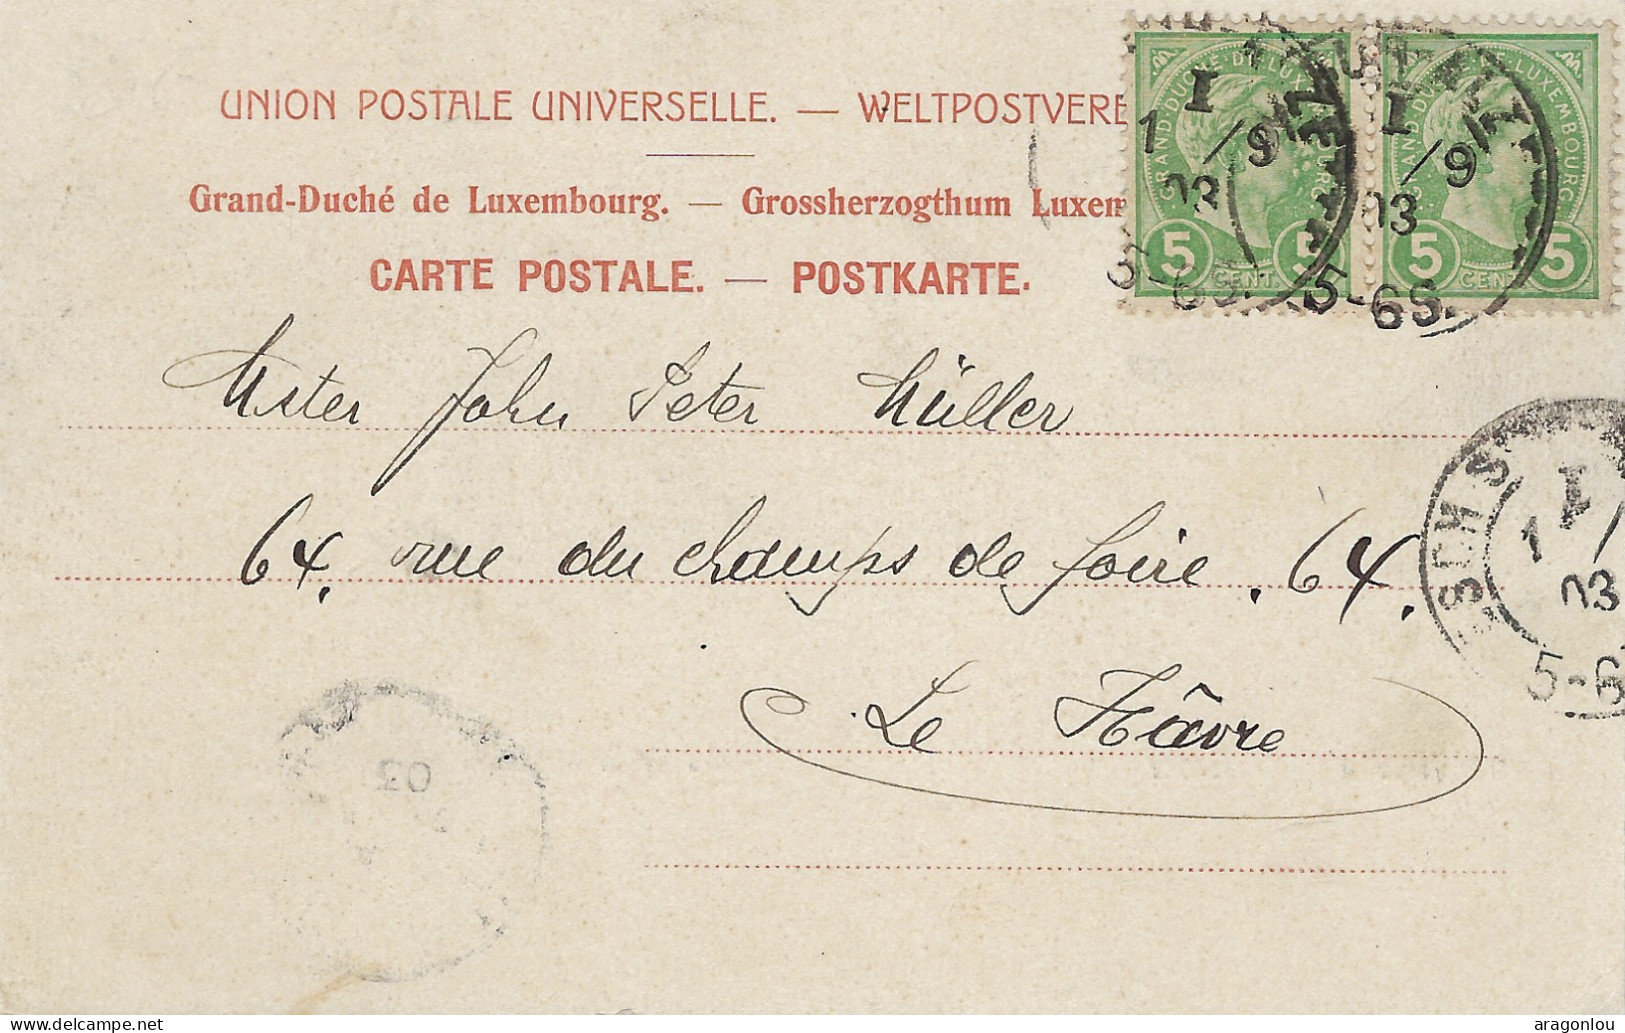 UNION POSTALE UNIVERSELLE. — WELTPOSTVERE
Grand-Duché de Luxembourg. — Grossherzogthum Luxem
CARTE POSTALE. — POSTKARTE.
GRAND-DUCHÉ-DE-LUXE BOURG
5 CENT. 5
GRAND-DU DE-LUXEMBOURG
5 CEN 5
I
1 /9
03
5-6S.
I
/9
03
5-6S.
Mister John Peter Müller
64. rue du champs de foire . 64.
Le Hâvre
SCH S
I
1 /
03
5-6
03
aragonlou